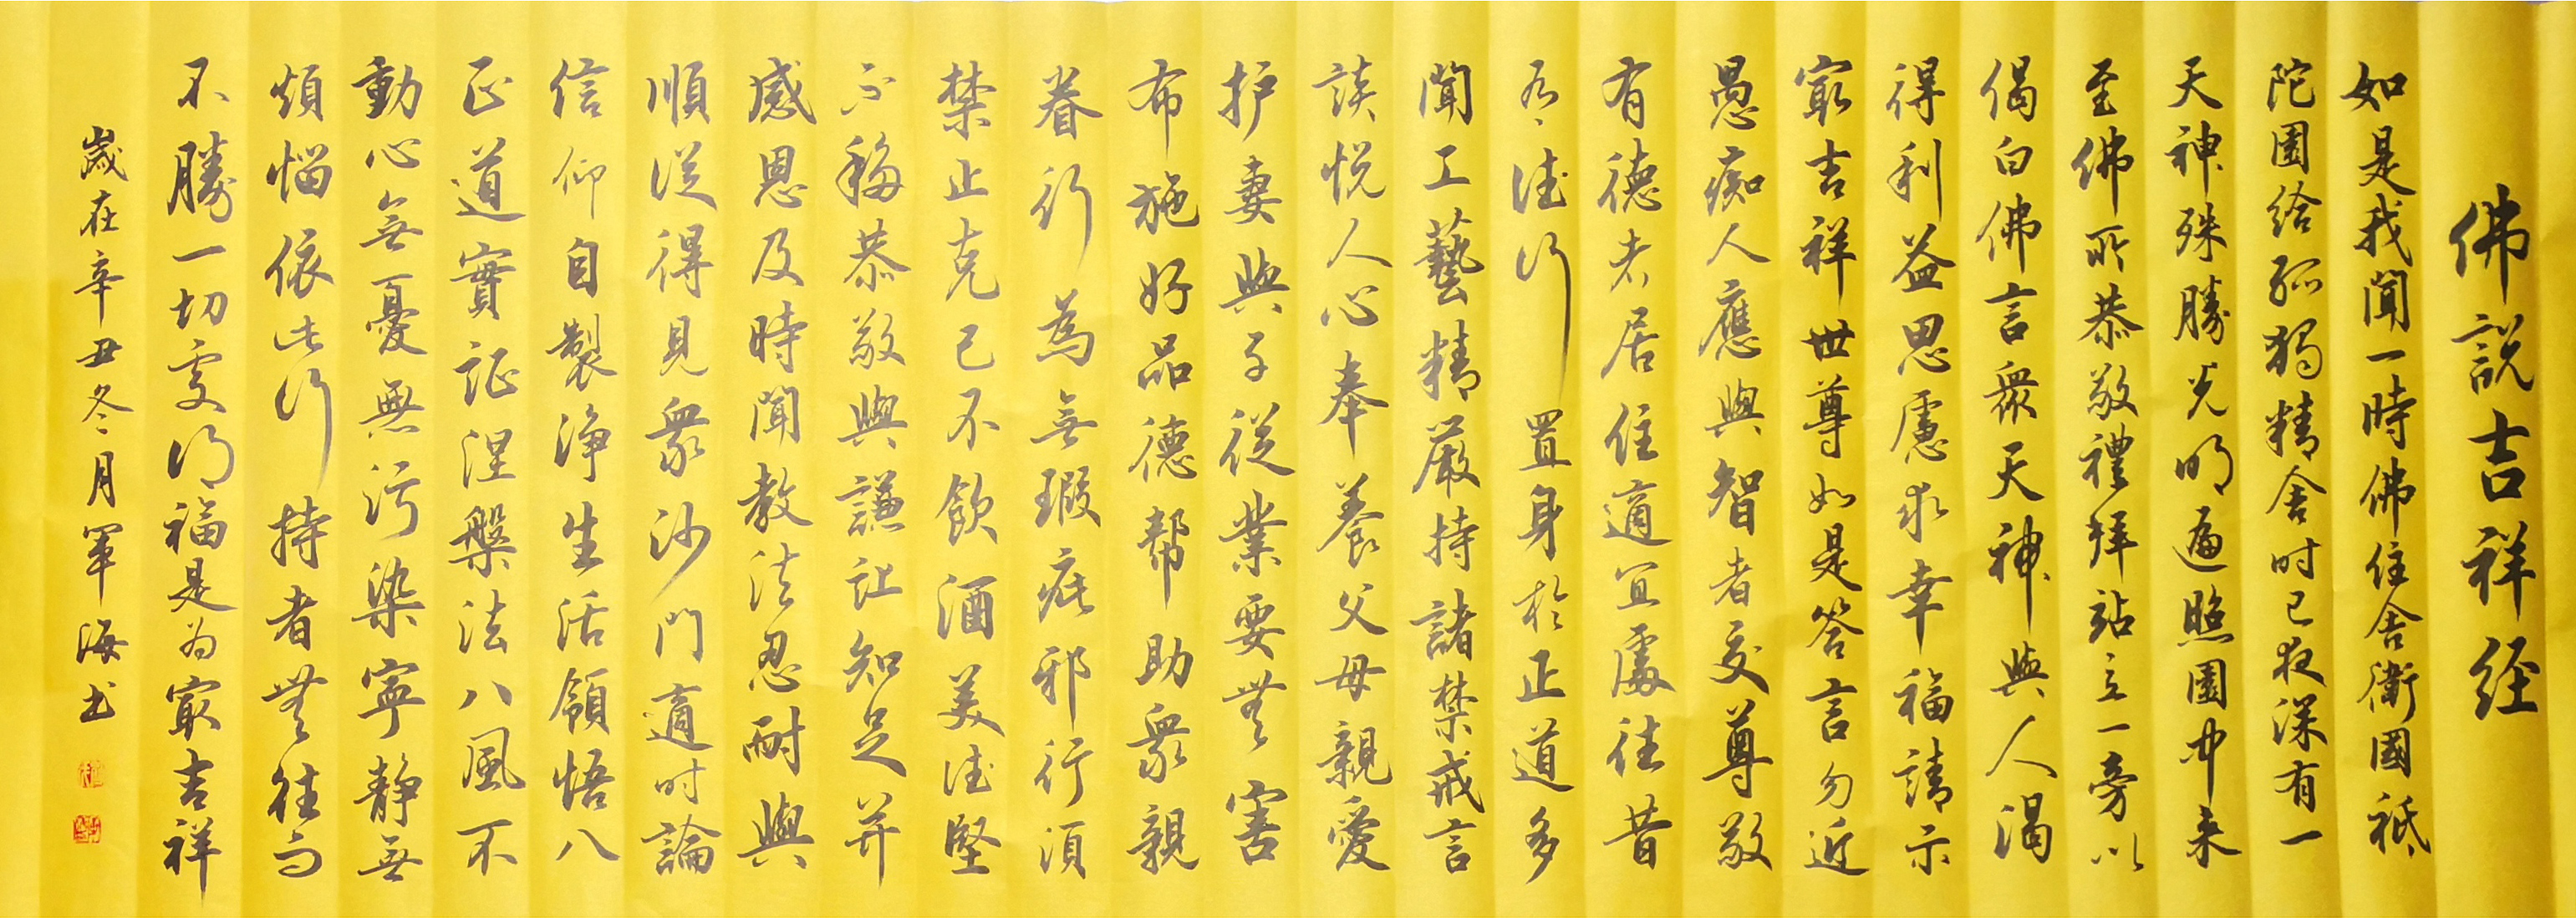 佛説吉祥经
如是我聞一時佛住舍衛國祇
陀園给孤獨精舍时已夜深有一
天神殊勝光明遍照園中来
至佛所恭敬禮拜站立一旁以
偈白佛言衆天神與人渴
得利益思慮求幸福請示
宲吉祥世尊如是答言勿近
愚痴人應與智者交尊敬
有德者居住適宜處往昔
有德行置身於正道多
聞工藝精嚴持諸禁戒言
談悦人心奉養父母親愛
护妻與子從業要無害
布施好品德帮助衆親
眷行為無瑕疵邪行須
禁止克己不飲酒美德堅
不移恭敬與謙让知足并
感恩及時聞教法忍耐與
順從得見衆沙門適时論
信仰自製净生活領悟八
正道實证涅槃法八風不
動心無憂無污染寧静無
煩惱依此行持者無往而
不勝一切處得福是为宲吉祥
歲在辛丑冬月軍海书